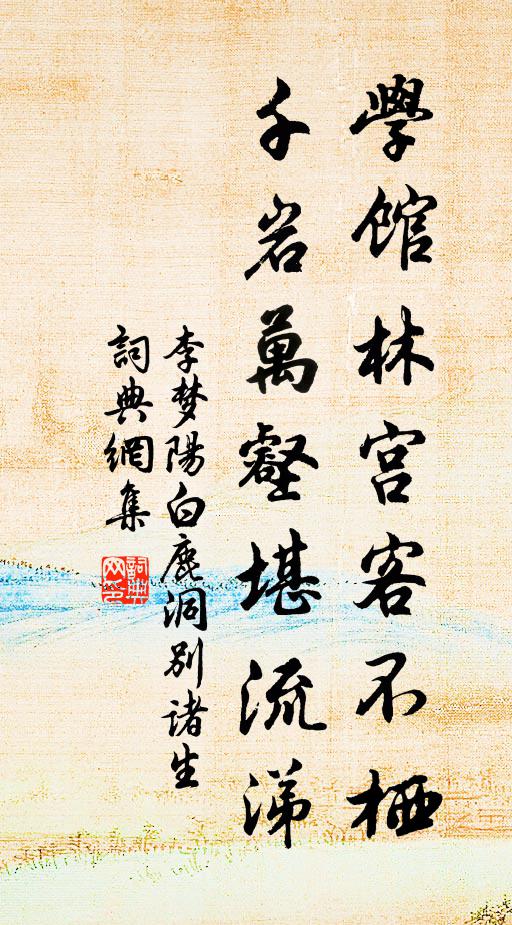 學館林宫客不栖
千岩萬壑堪流涕
李梦陽白鹿洞别诸生
詞典網集
詞典网名